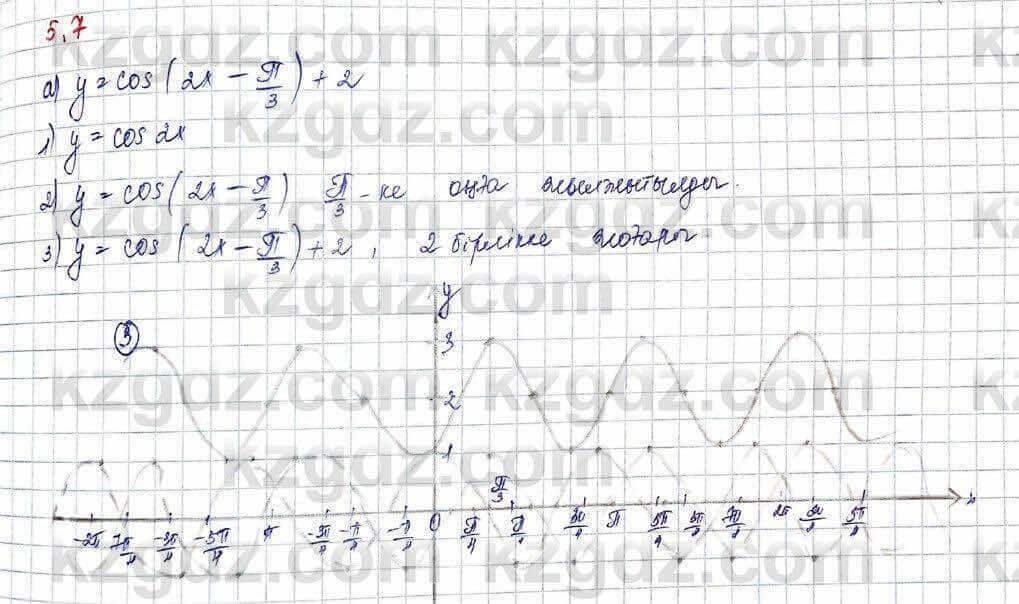 5.7
a) y = cos(2x - π/3) + 2
1) y = cos 2x
2) y = cos(2x - π/3) π/3 - ке оңға жылжытылды.
3) y = cos(2x - π/3) + 2, 2 бірлікке жоғары.
y
3
3
2
1
π/3
x
-2π
-5π/4
-3π/4
-π/4
0
π/4
3π/4
π
2π
5π/2
kzgdz.com